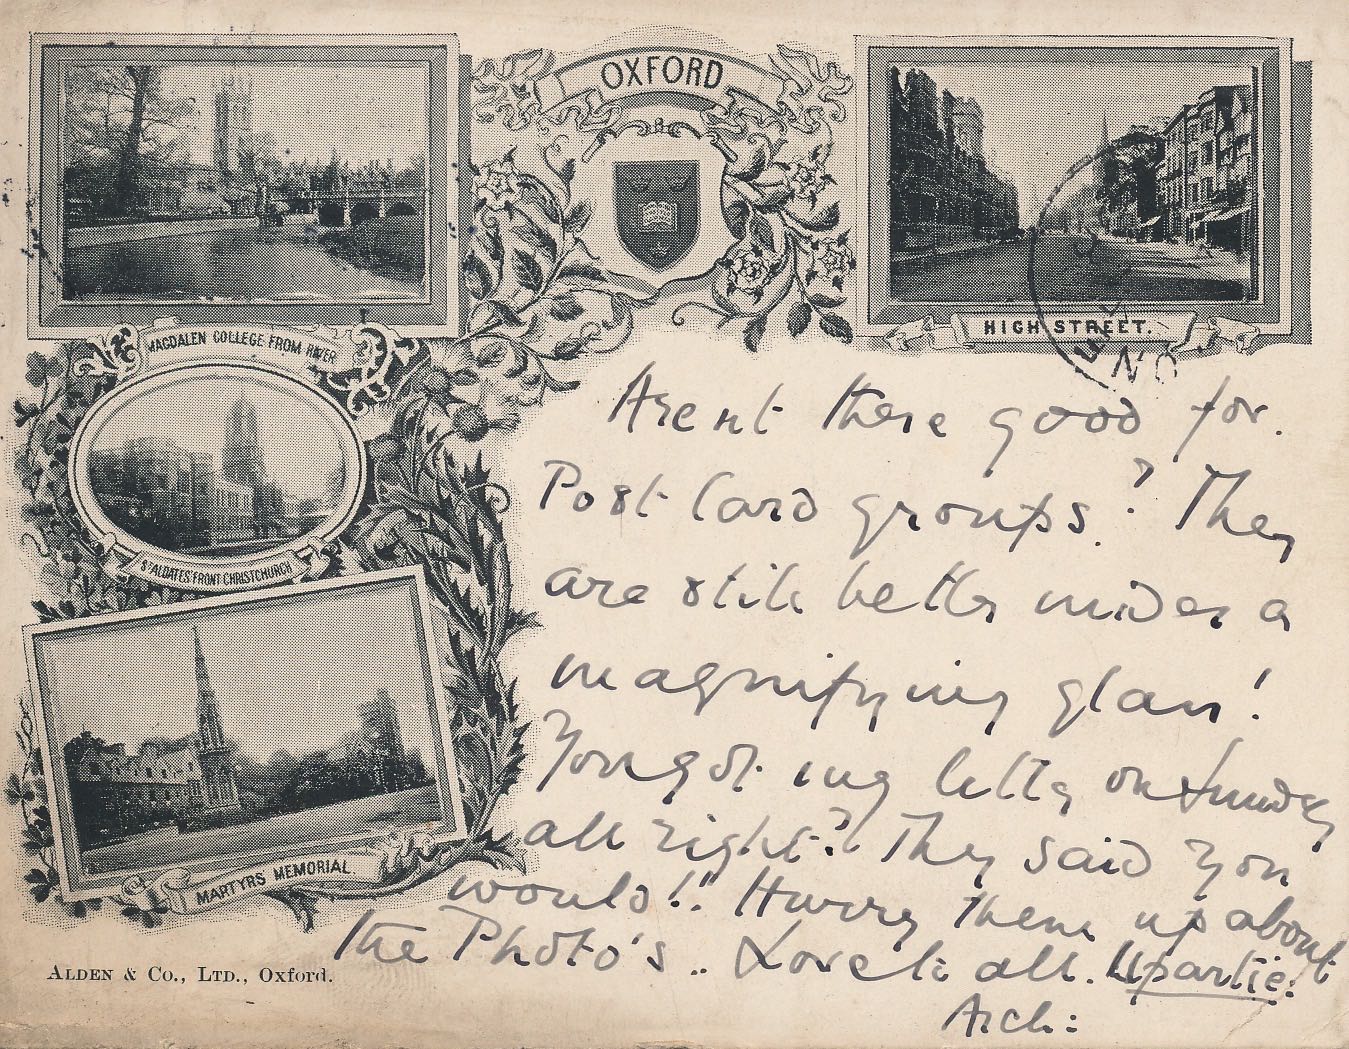 OXFORD
MAGDALEN COLLEGE FROM RIVER
HIGH STREET.
Arent these good for
Post Card groups? They
are still better under a
magnifying glass!
You got my letter on Sunday
all right? They said you
would!! Hurry them up about
the Photo's.. Love to all.
Arch:
ST ALDATES FRONT CHRISTCHURCH
MARTYRS MEMORIAL.
ALDEN & Co., LTD., Oxford.